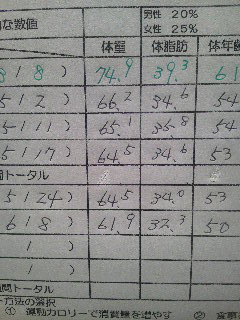 男性 20%
な数値 女性 25%
体重 体脂肪 体年齢
8 ) 74.9 39.3 61
5 1 2 ) 66.2 34.6 54
5 1 11 ) 65.1 35.8 54
5 1 17 ) 64.5 34.6 53
間トータル
5 1 24 ) 64.5 34.0 53
6 1 8 ) 61.9 32.3 50
1 )
1 )
間トータル
方法の選択
① 運動カロリーで消費量を増やす ② 食事